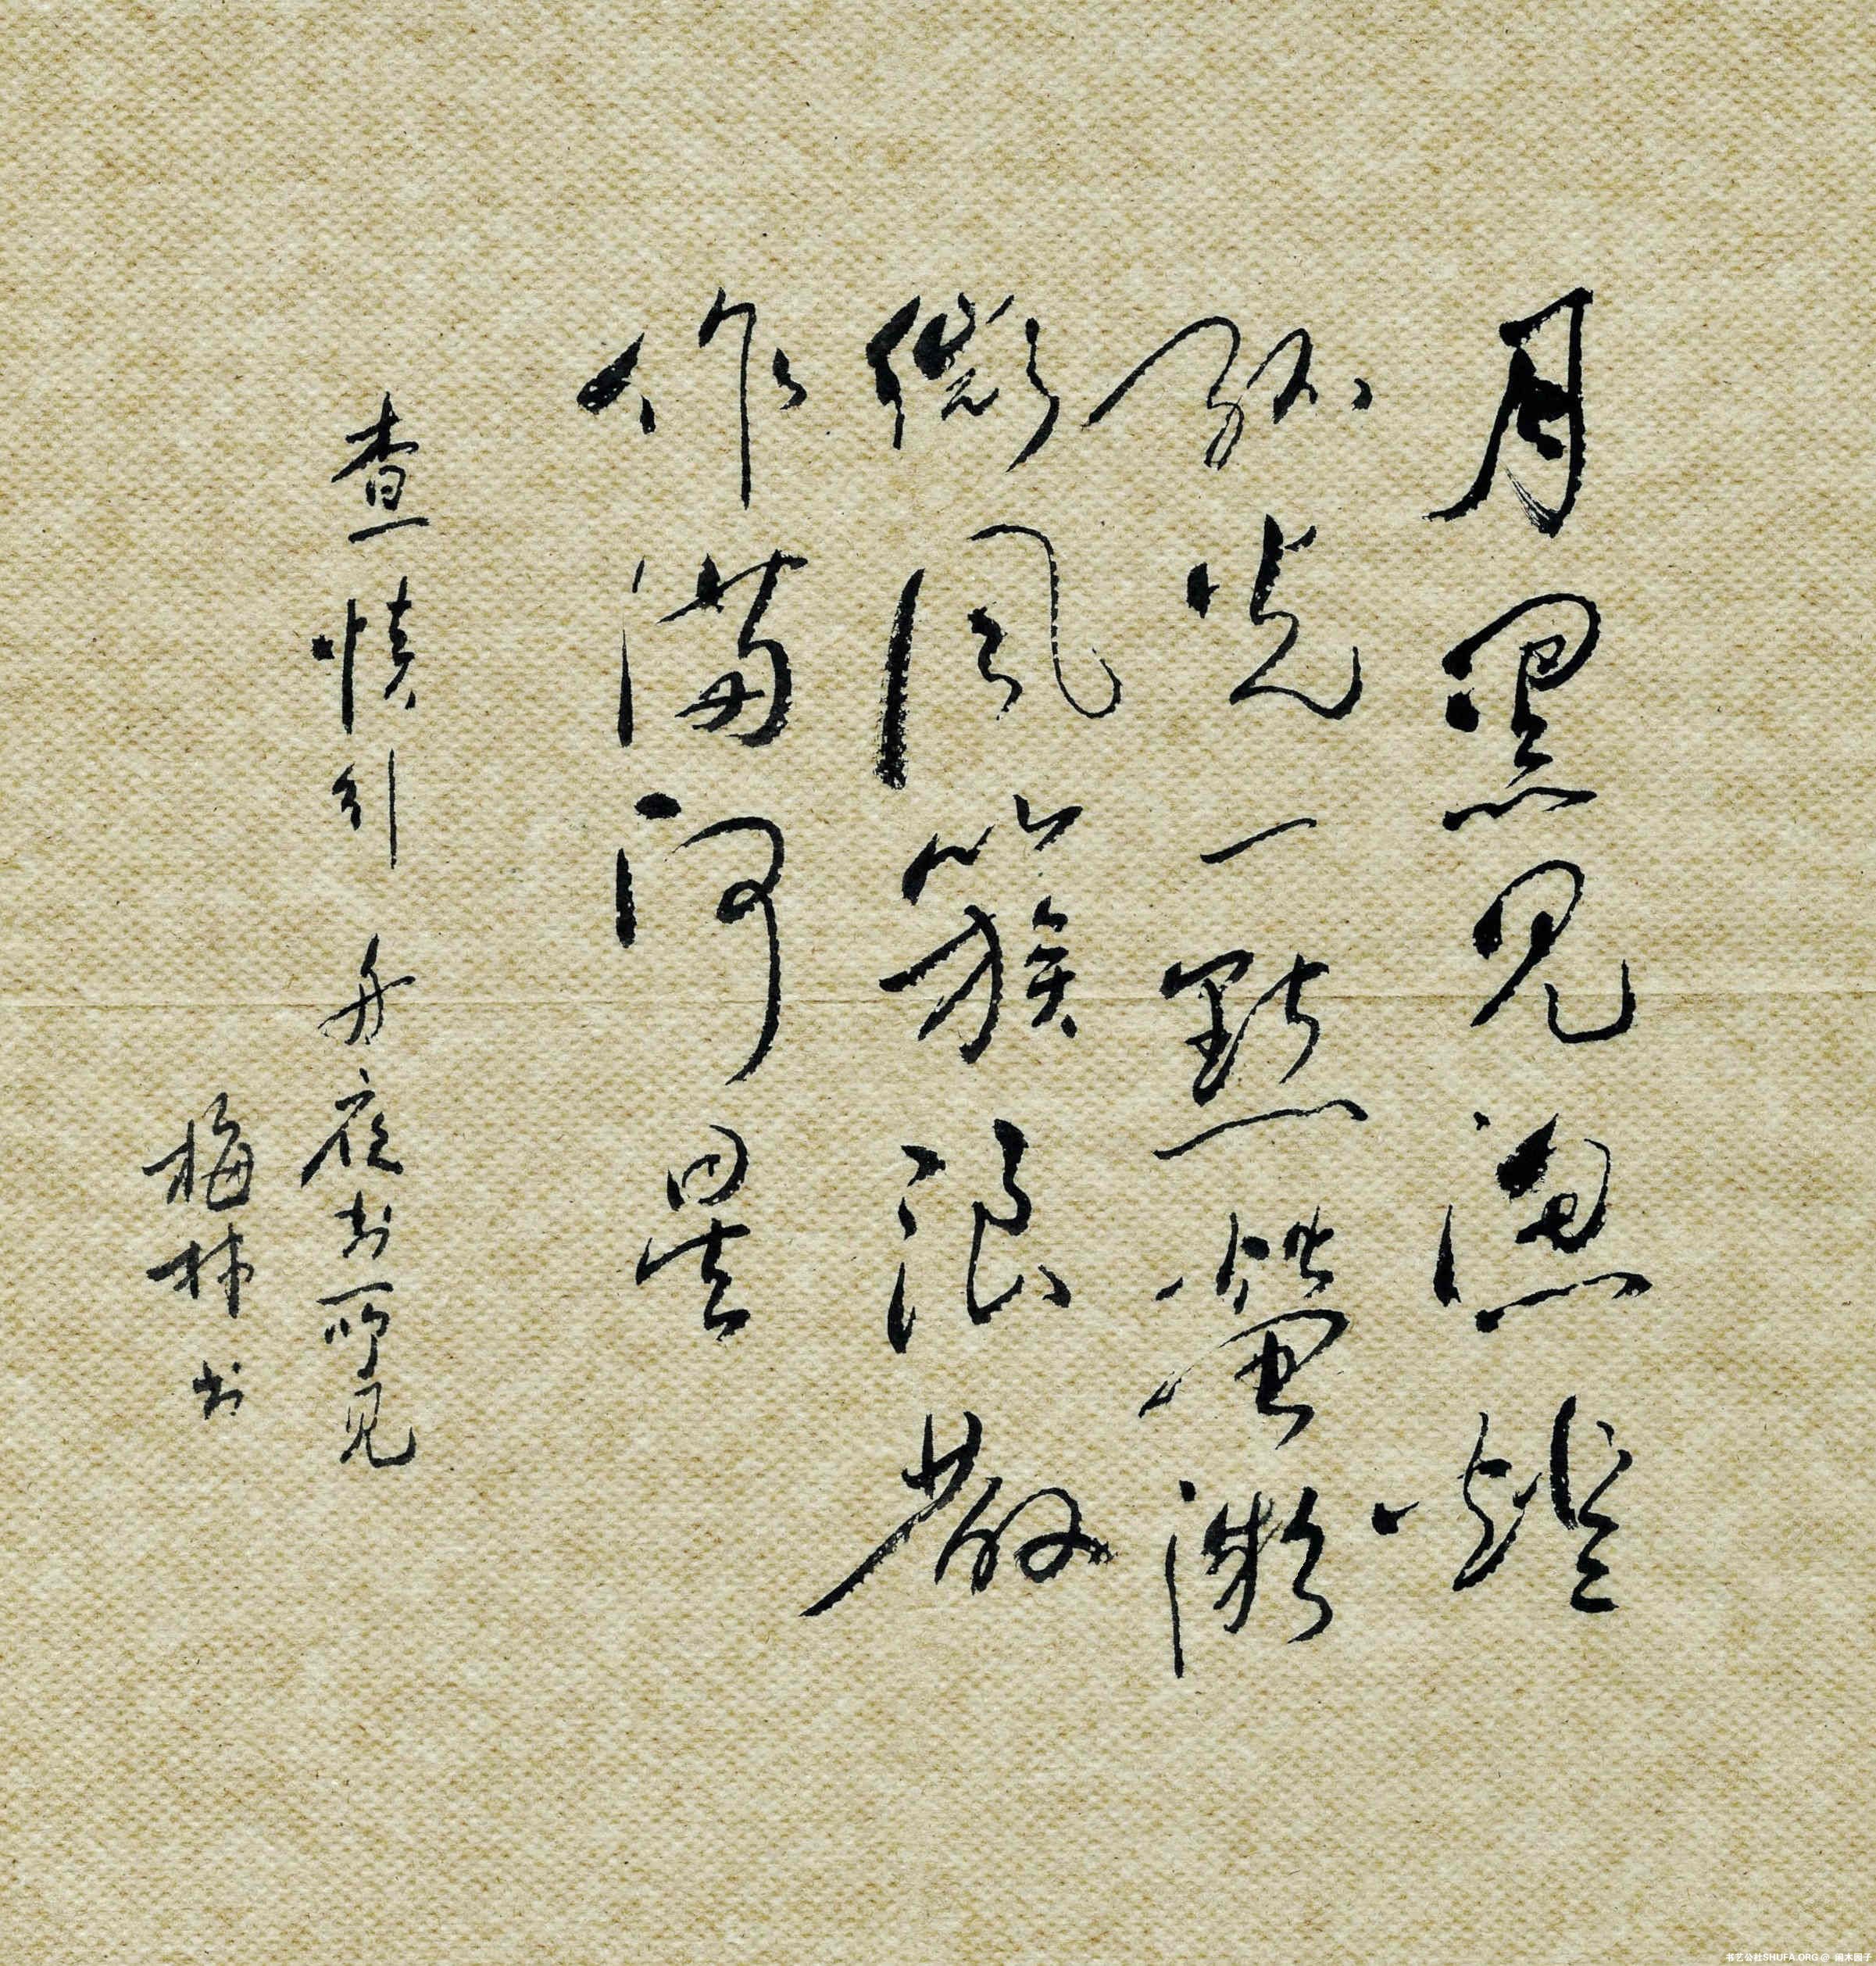 月黑見漁燈
孤光一點螢微
微風簇浪散
作滿河星
查慎行 舟夜书所见
梅林书
书艺公社SHUFA.ORG@ 闲木园子